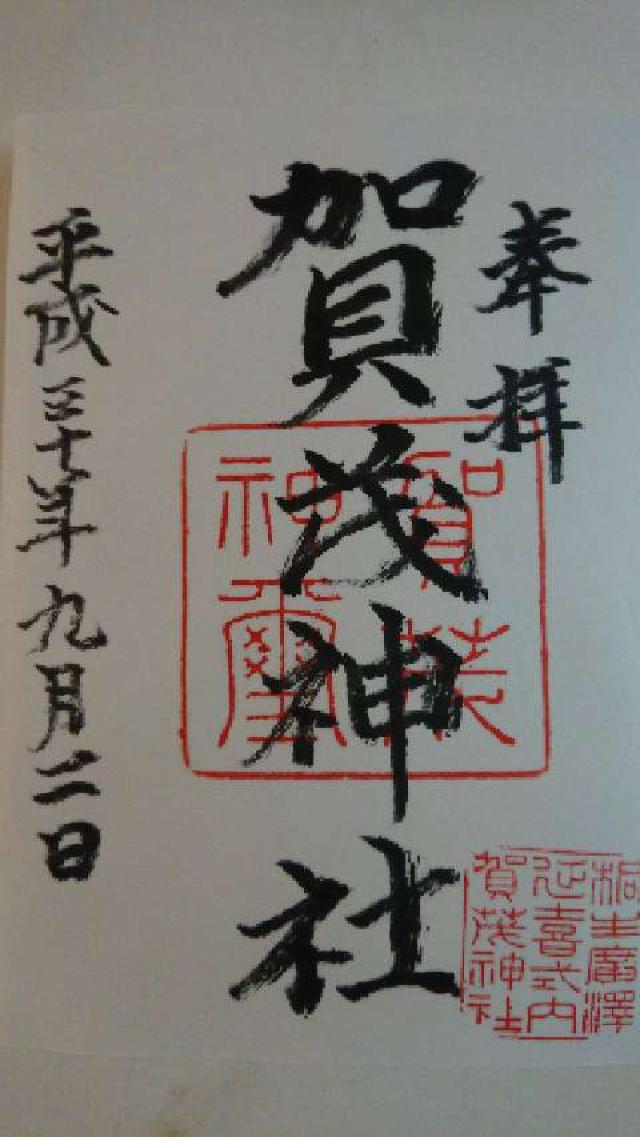 奉拝
賀茂神社
平成三十年九月二日
賀茂
神璽
桐生廣澤
延喜式内
賀茂神社